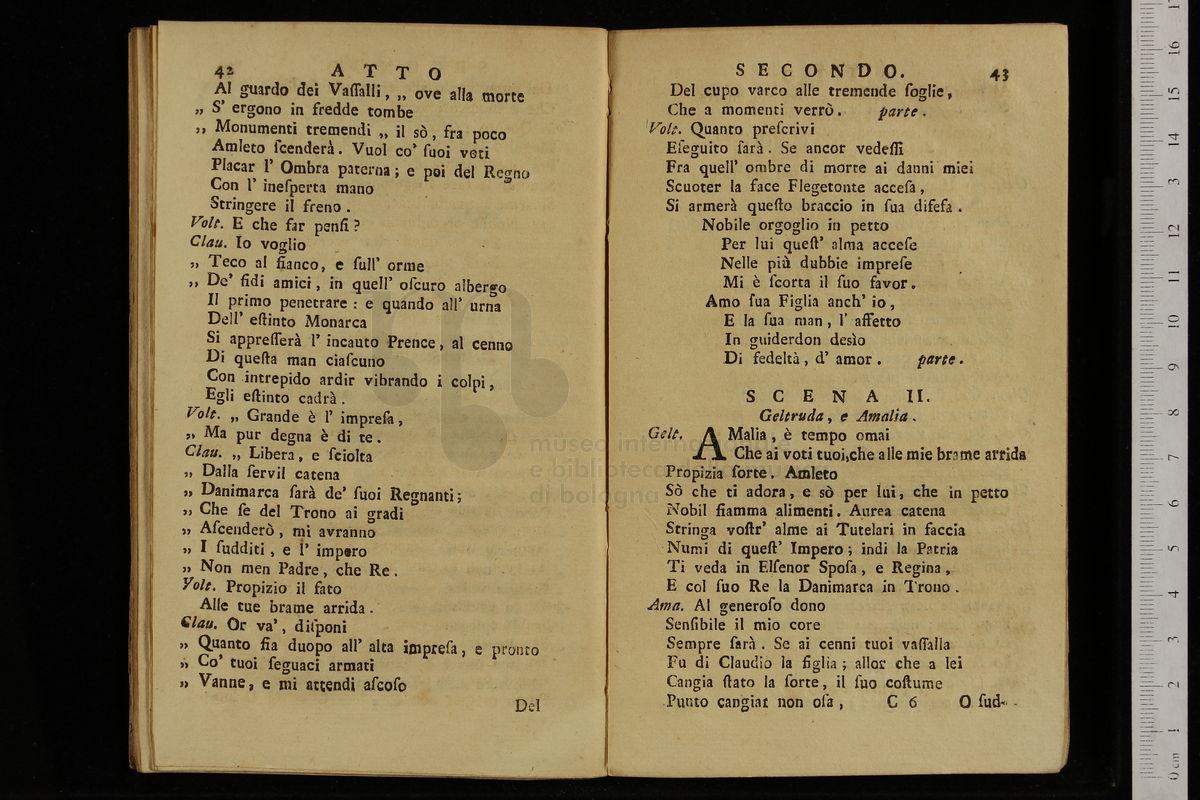 42 ATTO
Al guardo dei Vaſſalli, „ ove alla morte
„ S' ergono in fredde tombe
„ Monumenti tremendi „ il sò, fra poco
Amleto ſcenderà. Vuol co' ſuoi voti
Placar l' Ombra paterna; e poi del Regno
Con l' ineſperta mano
Stringere il freno.
Volt. E che far penſi?
Clau. Io voglio
„ Teco al fianco, e ſull' orme
„ De' fidi amici, in quell' oſcuro albergo
Il primo penetrare: e quando all' urna
Dell' eſtinto Monarca
Si appreſſerà l' incauto Prence, al cenno
Di queſta man ciaſcuno
Con intrepido ardir vibrando i colpi,
Egli eſtinto cadrà.
Volt. „ Grande è l' impreſa,
„ Ma pur degna è di te.
Clau. „ Libera, e ſciolta
„ Dalla ſervil catena
„ Danimarca ſarà de' ſuoi Regnanti;
„ Che ſe del Trono ai gradi
„ Aſcenderò, mi avranno
„ I ſudditi, e l' impero
„ Non men Padre, che Re.
Volt. Propizio il fato
Alle tue brame arrida.
Clau. Or va', diſponi
„ Quanto fia duopo all' alta impreſa, e pronto
„ Co' tuoi ſeguaci armati
„ Vanne, e mi attendi aſcoſo
Del
SECONDO. 43
Del cupo varco alle tremende ſoglie,
Che a momenti verrò. parte.
Volt. Quanto preſcrivi
Eſeguito ſarà. Se ancor vedeſſi
Fra quell' ombre di morte ai danni miei
Scuoter la face Flegetonte acceſa,
Si armerà queſto braccio in ſua difeſa.
Nobile orgoglio in petto
Per lui queſt' alma acceſe
Nelle più dubbie impreſe
Mi è ſcorta il ſuo favor.
Amo ſua Figlia anch' io,
E la ſua man, l' affetto
In guiderdon desìo
Di fedeltà, d' amor. parte.
SCENA II.
Geltruda, e Amalia.
Gelt. AMalia, è tempo omai
Che ai voti tuoi, che alle mie brame arrida
Propizia ſorte. Amleto
Sò che ti adora, e sò per lui, che in petto
Nobil fiamma alimenti. Aurea catena
Stringa voſtr' alme ai Tutelari in faccia
Numi di queſt' Impero; indi la Patria
Ti veda in Elſenor Spoſa, e Regina,
E col ſuo Re la Danimarca in Trono.
Ama. Al generoſo dono
Senſibile il mio core
Sempre ſarà. Se ai cenni tuoi vaſſalla
Fu di Claudio la figlia; allor che a lei
Cangia ſtato la ſorte, il ſuo coſtume
Punto cangiar non oſa, C 6 O ſud-
museo internazionale
e biblioteca della musica
di bologna
0 cm 1 2 3 4 5 6 7 8 9 10 11 12 13 14 15 16 17